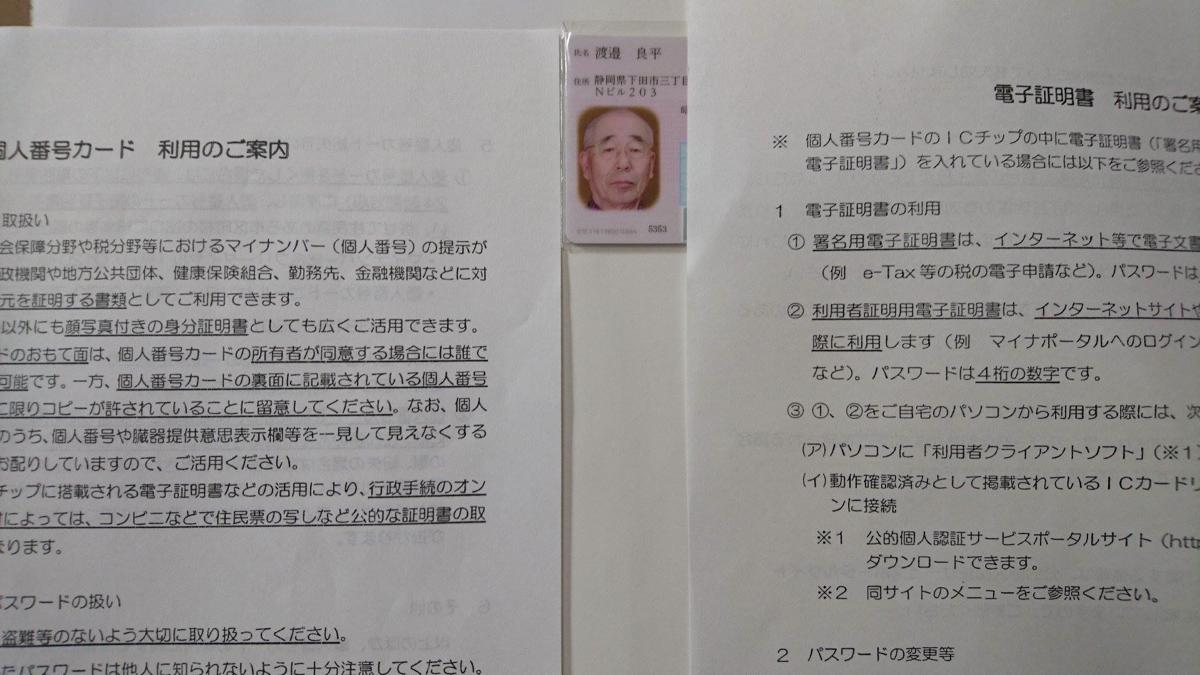 個人番号カード 利用のご案内
取扱い
会保障分野や税分野等におけるマイナンバー(個人番号)の提示が
政機関や地方公共団体、健康保険組合、勤務先、金融機関などに対
元を証明する書類としてご利用できます。
以外にも顔写真付きの身分証明書としても広くご活用できます。
ドのおもて面は、個人番号カードの所有者が同意する場合には誰で
可能です。一方、個人番号カードの裏面に記載されている個人番号
に限りコピーが許されていることに留意してください。なお、個人
のうち、個人番号や臓器提供意思表示欄等を一見して見えなくする
お配りしていますので、ご活用ください。
チップに搭載される電子証明書などの活用により、行政手続のオン
によっては、コンビニなどで住民票の写しなど公的な証明書の取
なります。
パスワードの扱い
盗難等のないよう大切に取り扱ってください。
たパスワードは他人に知られないように十分注意してください。
氏名 渡邉 良平
住所 静岡県下田市三丁目
Nビル203
5353
電子証明書 利用のご案
※ 個人番号カードのICチップの中に電子証明書(「署名用
電子証明書」)を入れている場合には以下をご参照くださ
1 電子証明書の利用
① 署名用電子証明書は、インターネット等で電子文書
(例 e-Tax等の税の電子申請など)。パスワードは
② 利用者証明用電子証明書は、インターネットサイトや
際に利用します(例 マイナポータルへのログイン
など)。パスワードは4桁の数字です。
③ ①、②をご自宅のパソコンから利用する際には、次
(ア)パソコンに「利用者クライアントソフト」(※1)
(イ)動作確認済みとして掲載されているICカードリ
ンに接続
※1 公的個人認証サービスポータルサイト(http
ダウンロードできます。
※2 同サイトのメニューをご参照ください。
2 パスワードの変更等